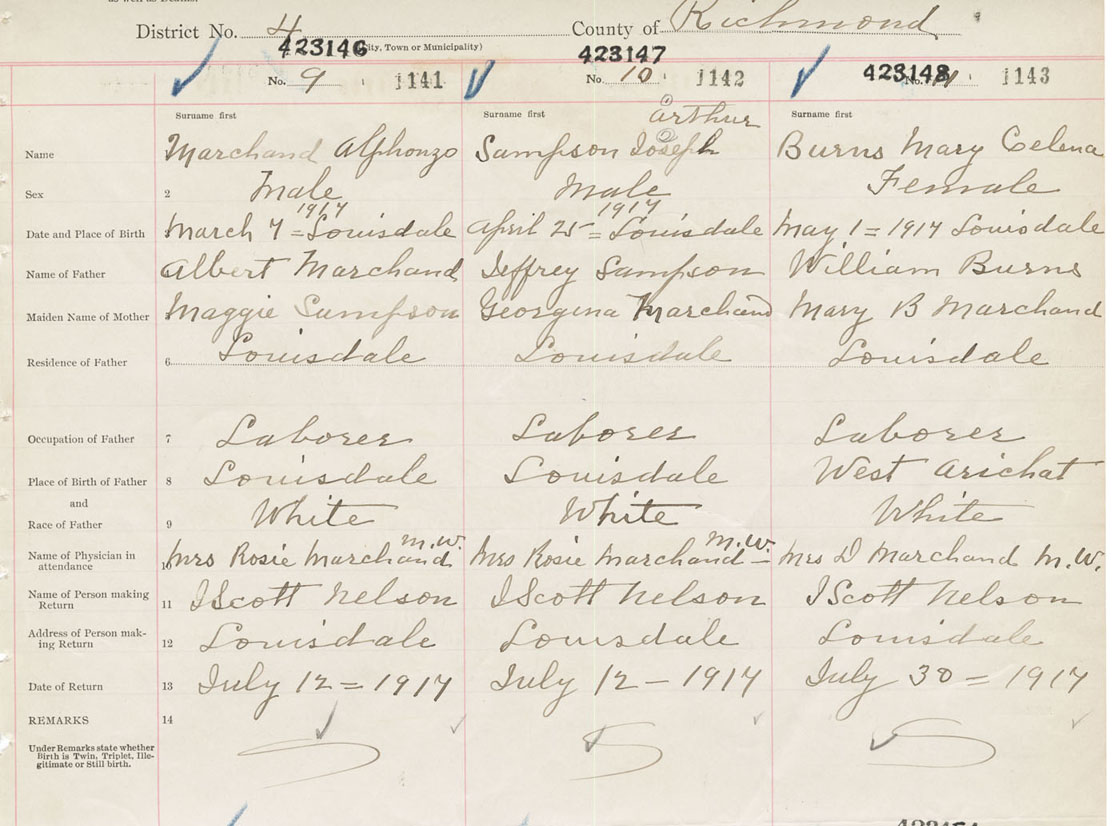 as well as Deaths.
District No. 4 County of Richmond
(City, Town or Municipality)
423146 423147 423148
No. 9 1141 No. 10 1142 No. 11 1143
Surname first Surname first Surname first
Arthur
Name Marchand Alphonzo Sampson Joseph Burns Mary Celena
Sex 2 Male Male Female
1917 1917
Date and Place of Birth March 7 = Louisdale April 25 = Louisdale May 1 = 1917 Louisdale
Name of Father Albert Marchand Jeffrey Sampson William Burns
Maiden Name of Mother Maggie Sampson Georgina Marchand Mary B Marchand
Residence of Father 6 Louisdale Louisdale Louisdale
Occupation of Father 7 Laborer Laborer Laborer
Place of Birth of Father 8 Louisdale Louisdale West Arichat
and
Race of Father 9 White White White
M.W. M.W.
Name of Physician in attendance 10 Mrs Rosie Marchand Mrs Rosie Marchand – Mrs D Marchand M.W.
Name of Person making Return 11 I Scott Nelson I Scott Nelson I Scott Nelson
Address of Person mak-
ing Return 12 Louisdale Louisdale Louisdale
Date of Return 13 July 12 = 1917 July 12 – 1917 July 30 = 1917
REMARKS 14
Under Remarks state whether
Birth is Twin, Triplet, Ille-
gitimate or Still birth.